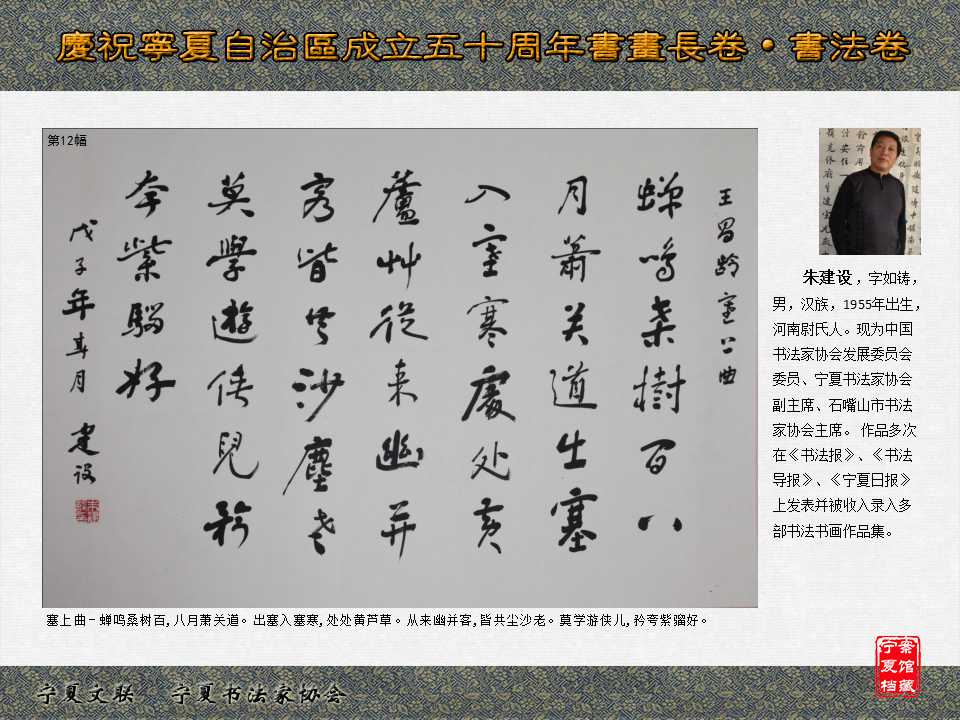 慶祝寧夏自治區成立五十周年書畫長卷·書法卷
第12幅
王昌龄塞上曲
蟬鳴桑樹百八
月蕭关道出塞
入塞寒處处黄
蘆艸從来幽并
客皆共沙塵老
莫學遊侠兒矜
夸紫騮好
戊子年春月 建设
朱建设，字如铸，
男，汉族，1955年出生，
河南尉氏人。现为中国
书法家协会发展委员会
委员、宁夏书法家协会
副主席、石嘴山市书法
家协会主席。 作品多次
在《书法报》、《书法
导报》、《宁夏日报》
上发表并被收入录入多
部书法书画作品集。
塞上曲－蝉鸣桑树百, 八月萧关道。出塞入塞寒, 处处黄芦草。从来幽并客, 皆共尘沙老。莫学游侠儿, 矜夸紫蹓好。
宁夏文联 宁夏书法家协会
宁夏档案馆藏